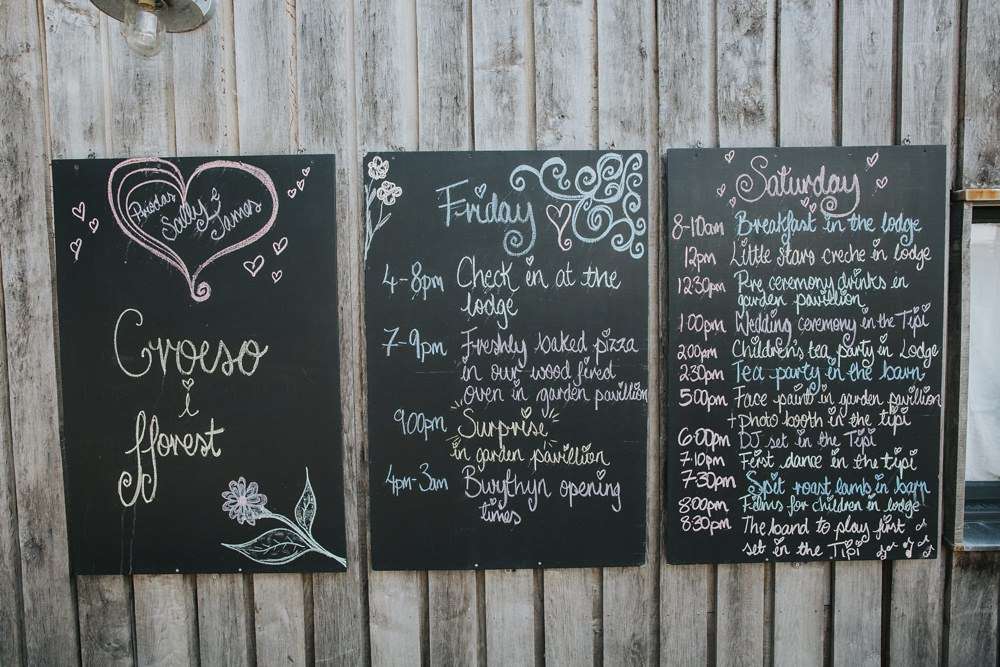 Priodas
Sally i
James
Croeso
i
fforest
Friday
4-8pm Check in at the
lodge
7-9pm Freshly baked pizza
in our wood fired
oven in garden pavillion
9.00pm Surprise
in garden pavillion
4pm-3am Bwythyn opening
times
Saturday
8-10am Breakfast in the lodge
12pm Little stars creche in lodge
12.30pm Pre ceremony drinks in
garden pavillion
1.00pm Wedding ceremony in the Tipi
2.00pm Children's tea party in Lodge
2.30pm Tea party in the barn
5.00pm Face paint in garden pavillion
+ photo booth in the tipi
6.00pm DJ set in the Tipi
7.10pm First dance in the tipi
7-30pm Spit roast lamb in barn
8.00pm Films for children in lodge
8.30pm The band to play first
set in the Tipi